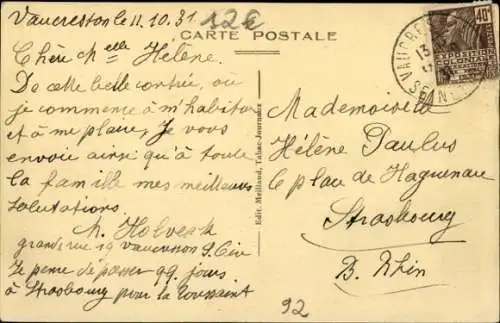 Vaucresson le 11.10.31
12€
CARTE POSTALE
40c
VAUCRESSON
Chère Melle Hélène.
De cette belle contrée, où
je commence à m'habituer
et à me plaire, Je vous
envoie ainsi qu'à toute
la famille mes meilleures
salutations.
grande rue 19 Vaucresson S. et
Je pense de passer qq. jours
à Strasbourg pour la Toussaint
Edit. Meilland, Tabac-Journaux
Mademoiselle
Hélène Paulus
6 plan de Haguenau
Strasbourg
B. Rhin
92